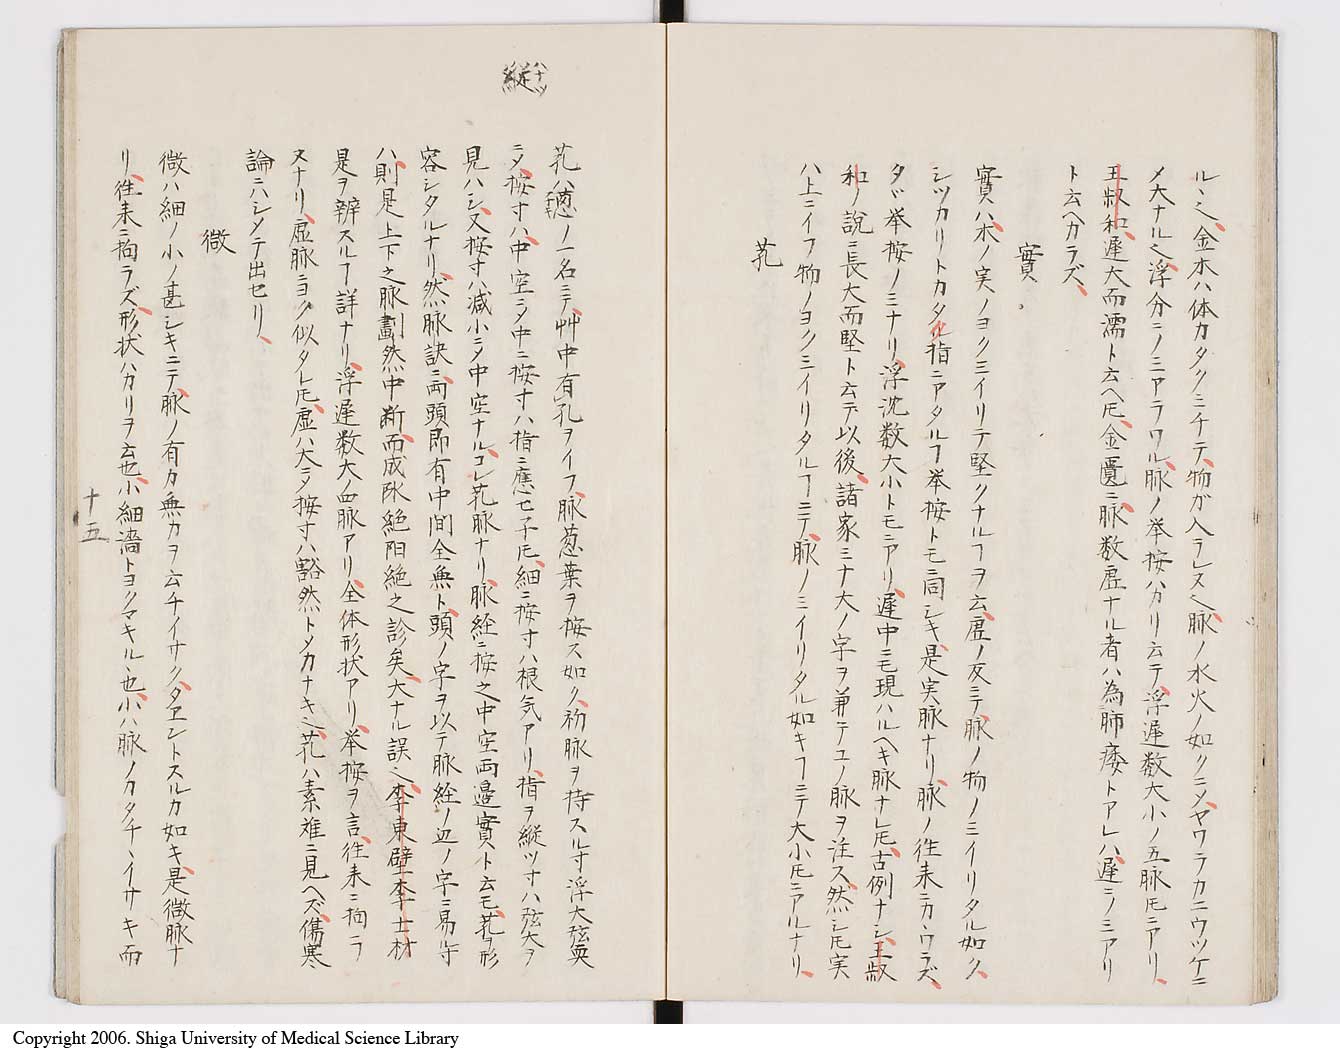 ルヿ金水ハ体カタクミチテ物ガ入ラレヌヿ脉ノ水火ノ如クニメヤワラカニウツケニ
メ大ナルヿ浮分ニノミアラワル脉ノ挙按ハカリ云テ浮遅数大小ノ五脉𪜈ニアリ
王叔和遅大而濡ト云ヘ𪜈金匱ニ脉数虚ナル者ハ為肺痿トアレハ遅ニノミアリ
ト云ヘカラズ
實
實ハ木ノ実ノヨクミイリテ堅クナルヿヲ云虚ノ反ニテ脉ノ物ノミイリタル如ク
シツカリトカタル指ニアタルヿ挙按トモニ同シキ是実脉ナリ脉ノ往来ニカヽワラズ
タヾ挙按ノミナリ浮沈数大小トモニアリ遅中ニモ現ハルヘキ脉ナレ𪜈古例ナシ王叔
和ノ説ニ長大而堅ト云テ以後諸家ミナ大ノ字ヲ兼テコノ脉ヲ注ス然シ𪜈実
ハ上ニイフ物ノヨクミイリタルヿニテ脉ノミイリタル如キヿニテ大小𪜈ニアルナリ
芤
縦
芤ハ葱ノ一名ニテ艸中有孔ヲイフ脉葱葉ヲ按ス如ク初脉ヲ持スル寸浮大弦耎
ニメ按寸ハ中空ニメ中ニ按寸ハ指ニ應セ子𪜈細ニ按寸ハ根気アリ指ヲ縦ツ寸ハ弦大ヲ
見ハシ又按寸ハ减小ニメ中空ナルコレ芤脉ナリ脉経ニ按之中空両邉實ト云モ芤ヲ形
容シタルナリ然脉訣ニ両頭即有中间全無ト頭ノ字ヲ以テ脉経ノ辺ノ字ニ易ル寸
ハ則是上下之脉劃然中断而成阴絶阳絶之診矣大ナル誤ヿ李東壁李士材
是ヲ辨スルヿ詳ナリ浮遅数大ノ四脉アリ全体形状アリ挙按ヲ言往来ニ拘ラ
ヌナリ虚脉ニヨク似タレ𪜈虚ハ大ニメ按寸ハ豁然トメカナキヿ芤ハ素难ニ見ヘズ傷寒
論ニハシメテ出セリ
微
微ハ細ノ小ノ甚シキニテ脉ノ有カ無カヲ云チイサクタヱントスルカ如キ是微脉ナ
リ往来ニ拘ラズ形状ハカリヲ云也小細濇トヨクマキルヽ也小ハ脉ノカタチヽイサキ而
十五
Copyright 2006. Shiga University of Medical Science Library